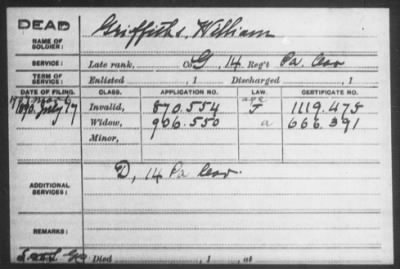 DEAD
NAME OF SOLDIER: Griffiths, William
SERVICE: Late rank, Co. G, 14 Reg't Pa. Cav
TERM OF SERVICE: Enlisted , 1 Discharged , 1
DATE OF FILING. CLASS. APPLICATION NO. LAW. CERTIFICATE NO.
1890 July 17 Invalid, 870.554 J 1119.475
Widow, 906.550 a 666.391
Minor,
ADDITIONAL SERVICES: D, 14 Pa Cav.
REMARKS:
Died , 1 , at